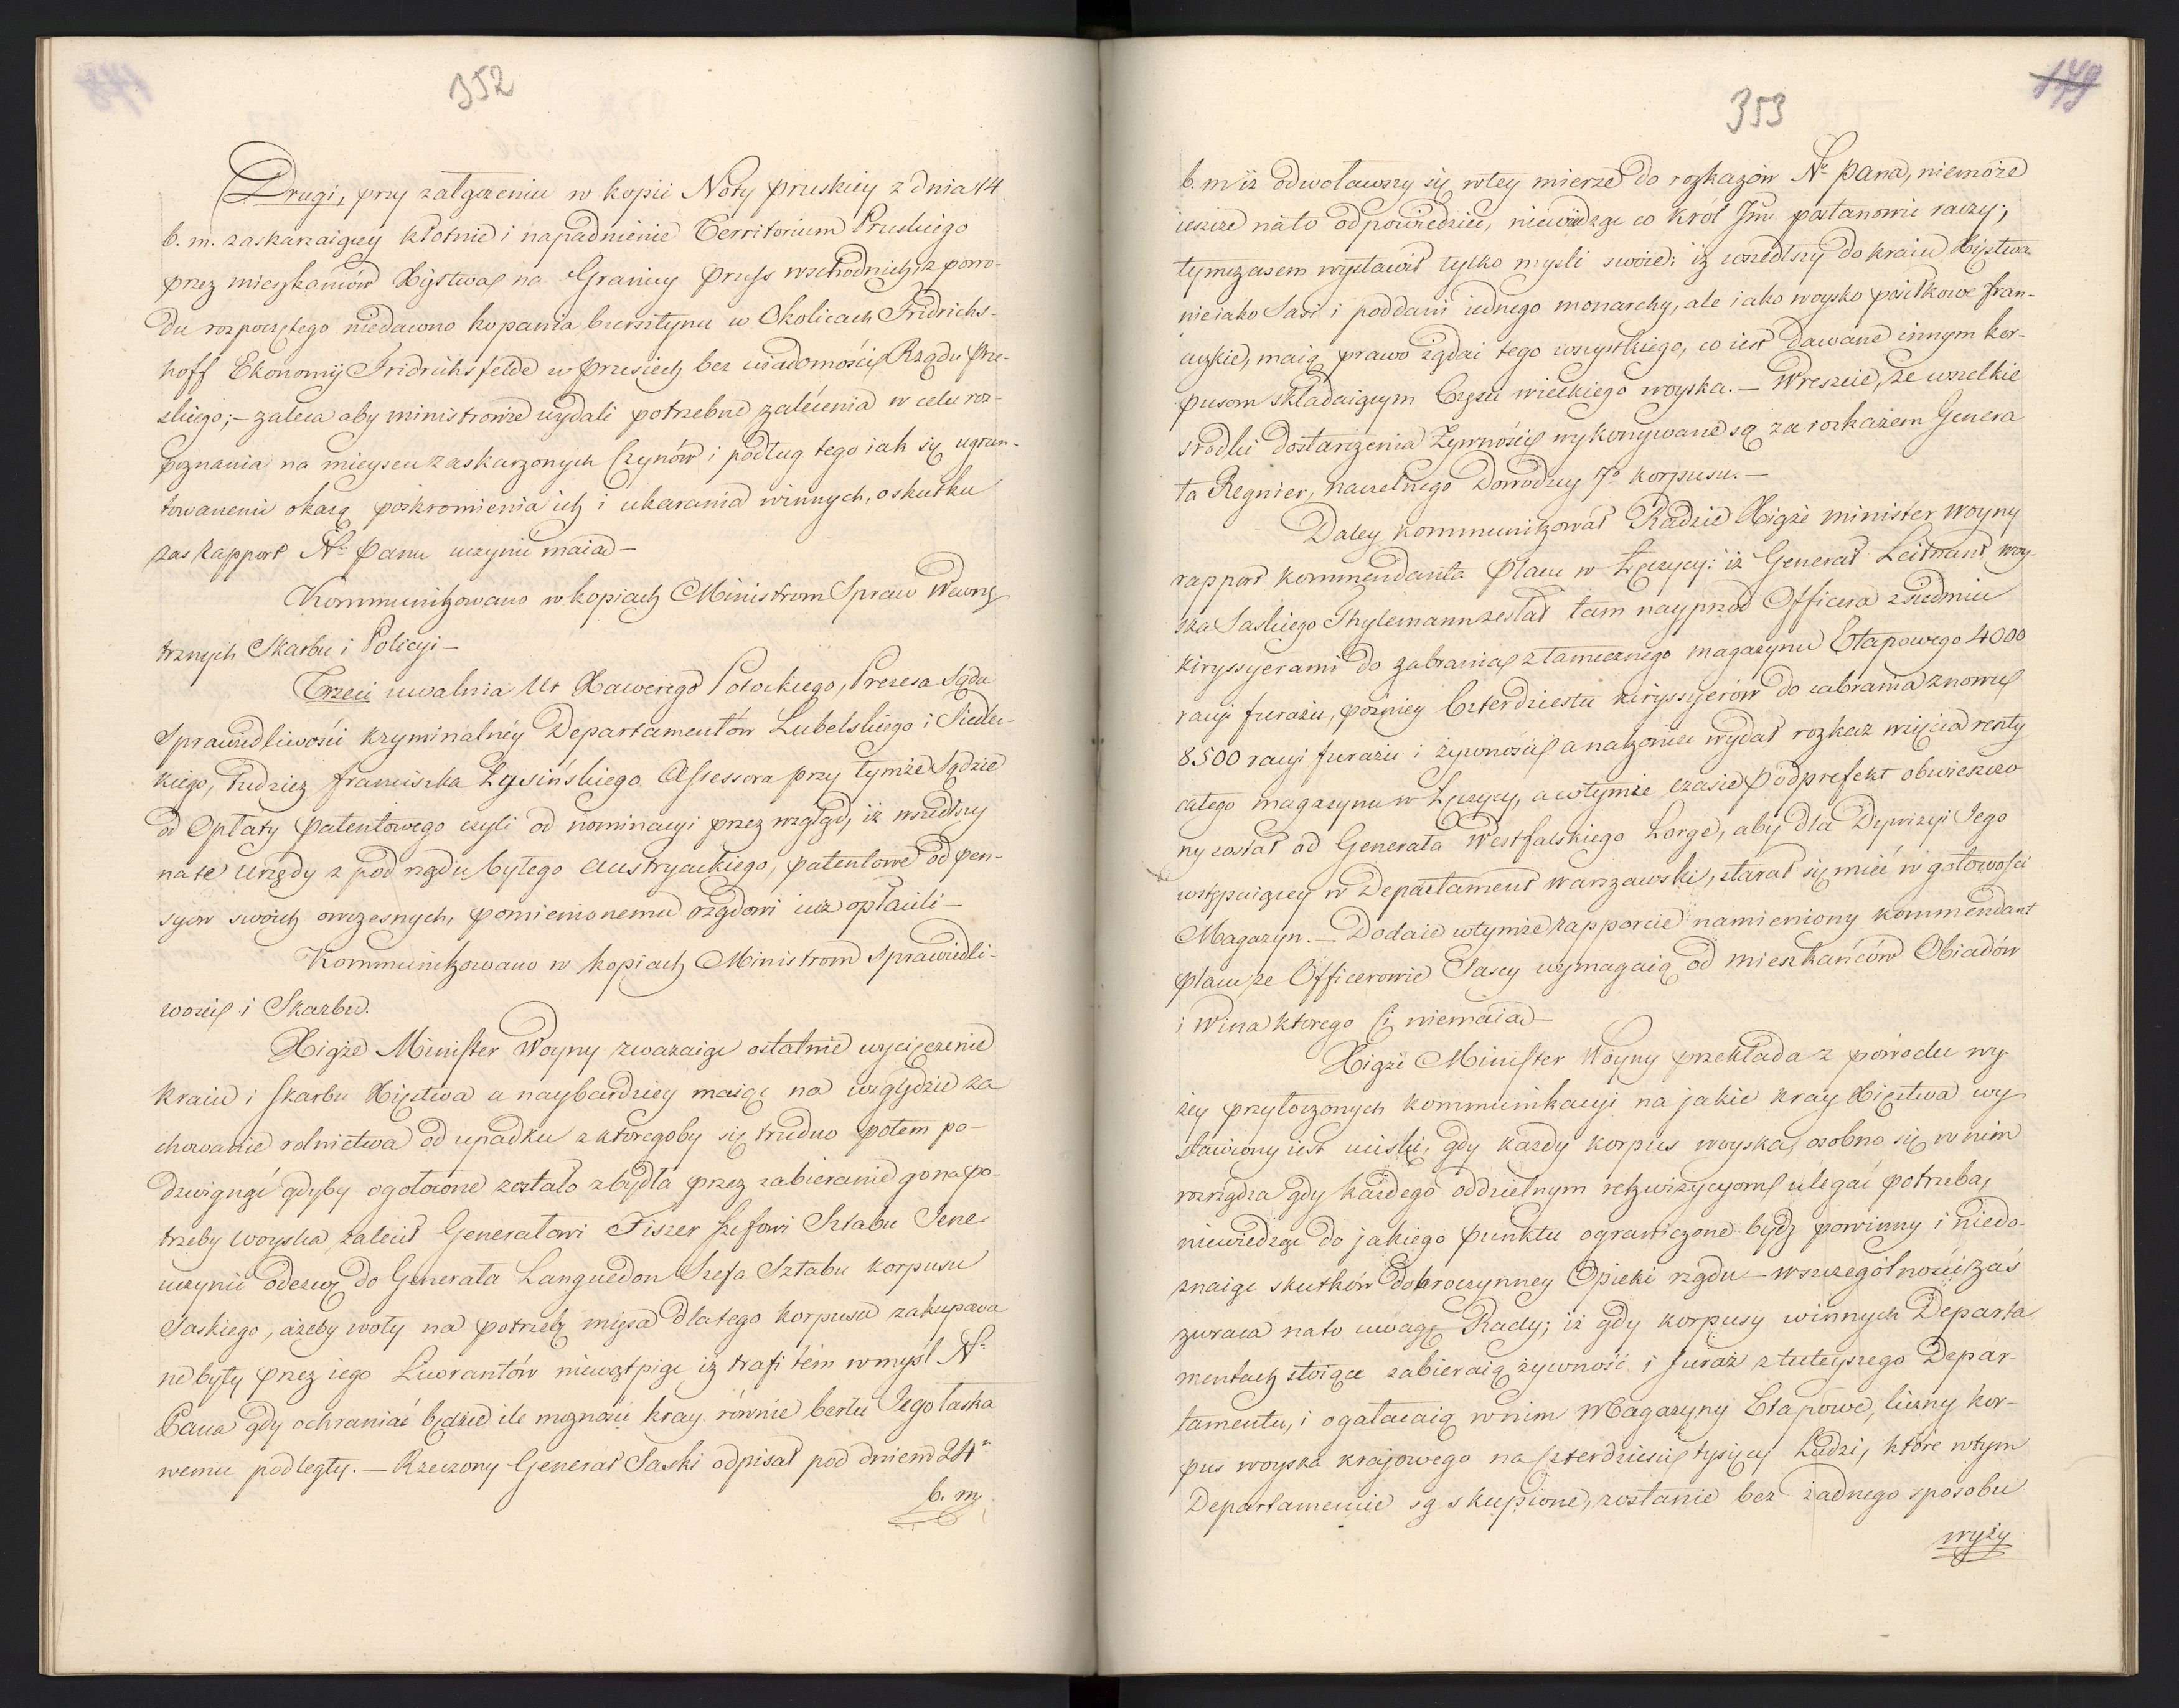 352
Drugi, przy załączeniu w kopii Noty pruskiey z dnia 14
b. m. zaskarzaiącey kłotnie i napadnienie Territorium Pruskiego
przez mieszkańców Xięstwa na Granicy Pruss wschodnich, z powo-
du rozpoczętego niedawno kopania bursztynu w Okolicach Fridrichs-
hoff Ekonomij Fridrichsfelde w Prusiech bez wiadomości Rządu Pru-
skiego; – zaleca aby ministrowie wydali potrzebne zalécenia w celu roz-
poznania na mieyscu zaskarzonych Czynów i podług tego iak się ugrun-
towanemi okażą poskromienia ich i ukarania winnych, o skutku
zas Rapport N. Panu uczynić maią –
Kommunikowano w kopiach Ministrom Spraw Wewnę
trznych Skarbu i Policyi –
Trzeci uwalnia Ur Xawerego Potockiego, Prezesa Sądu
Sprawiedliwości kryminalnéy Departamentów Lubelskiego i Siedlec-
kiego, tudzież Franciszka Łysińskiego Assessora przy tymże Sądzie
od Opłaty Patentowego czyli od nominacyi przez wzgląd, iż wszedłszy
na te Urzędy z pod rządu byłego Austryackiego, patentowe od pen-
syow swoich owczesnych, pomienionemu rządowi iuz opłacili –
Kommunikowano w kopiach Ministrom Sprawiedli-
wości i Skarbu.
Xiąże Minister Woyny zwazaiąc ostatnie wycięczenie
kraiu i skarbu Xięstwa a naybardziey maiąc na względzie za
chowanie rolnictwa od upadku z ktoregoby się trudno potem po-
dzwignąć gdyby ogołocone zostało z bydła przez zabieranie go na po-
trzeby woyska zalecił Generałowi Fiszer Szefowi Sztabu Jene
uczynić odezwę do Generała Languedon Szefa Sztabu korpusu
Saskiego, ażeby woły na potrzeb mięsa dla tego korpusu zakupowa
ne były przez iego Liwrantów niewątpiąc iż trafi tém w myśl N.
Pana gdy ochraniać będzie ile moznosci kray równie berłu Jego łaska
wemu podległy. – Rzeczony Generał Saski odpisał pod dniem 24
b. m
353
149
b. m iż odwoławszy się w tey mierze do rozkazów N. Pana, niemoże
ieszcze na to odpowiedzieć, niewiedząc co Król Jmć postanowić raczy;
tymczasem wystawił tylko mysli swoie: iż wszedłszy do kraiu Xięstwa
nie iako Sasi i poddani iednego monarchy, ale iako woysko posiłkowe fran-
cuzkie, maią prawo żądać tego wszystkiego, co iest dawane innym kor-
pusom składaiącym Część wielkiego woyska. – Wreszcie, że wszelkie
srodki dostarczenia Żywności wykonywane są za rozkazem Genera
ła Regnier, naczelnego Dowodzcy 7o korpusu. –
Daley kommunikował Radzie Xiąże minister woyny
rapport kommendanta Placu w Łęczycy: iż Generał Leitnant woy-
ska Saskiego Thylemann zesłał tam nayprzod Officera z siedmiu
kiryssyerami do zabrania z tamecznego magazynu Etapowego 4000
racyi furażu, pozniey Czterdziestu kiryssyerów do zabrania znowu
8500 racyi furażu i żywności a nakoniec wydał rozkaz wzięcia reszty
całego magazynu w Łęczycy, a w tymże czasie Podprefekt obwieszczo
ny został od Generała Westfalskiego Lorge, aby dla Dywizyi Jego
wstępuiącey w Departament Warszawski, starał się mieć w gotowosci
Magazyn. – Dodaie w tymże rapporcie namieniony kommendant
placu że Officerowie Sascy wymagaią od mieszkańców Obiadów
i Wina ktorego Ci niemaią –
Xiąże Minister Woyny przekłada z powodu wy-
żey przytoczonych kommunikacyi na jakie kray Xięstwa wy
stawiony iest uciski, gdy każdy korpus woyska, osobno się w nim
rozrządza gdy każdego oddzielnym rekwizycyom ulegać potrzeba,
niewiedząc do jakiego punktu ograniczone bydź powinny i niedo-
znaiąc skutków dobroczynney Opieki rządu – w szczególności zaś
zwraca na to uwagę Rady; iż gdy korpusy w innych Departa
mentach stoiące zabieraią żywność i furaż z tuteyszego Depar-
tamentu, i ogałacaią w nim Magazyny Etapowe, liczny kor-
pus woyska krajowego na Czterdziesci tysięcy Ludzi, które w tym
Departamencie są skupione, zostanie bez żadnego sposobu
wyży